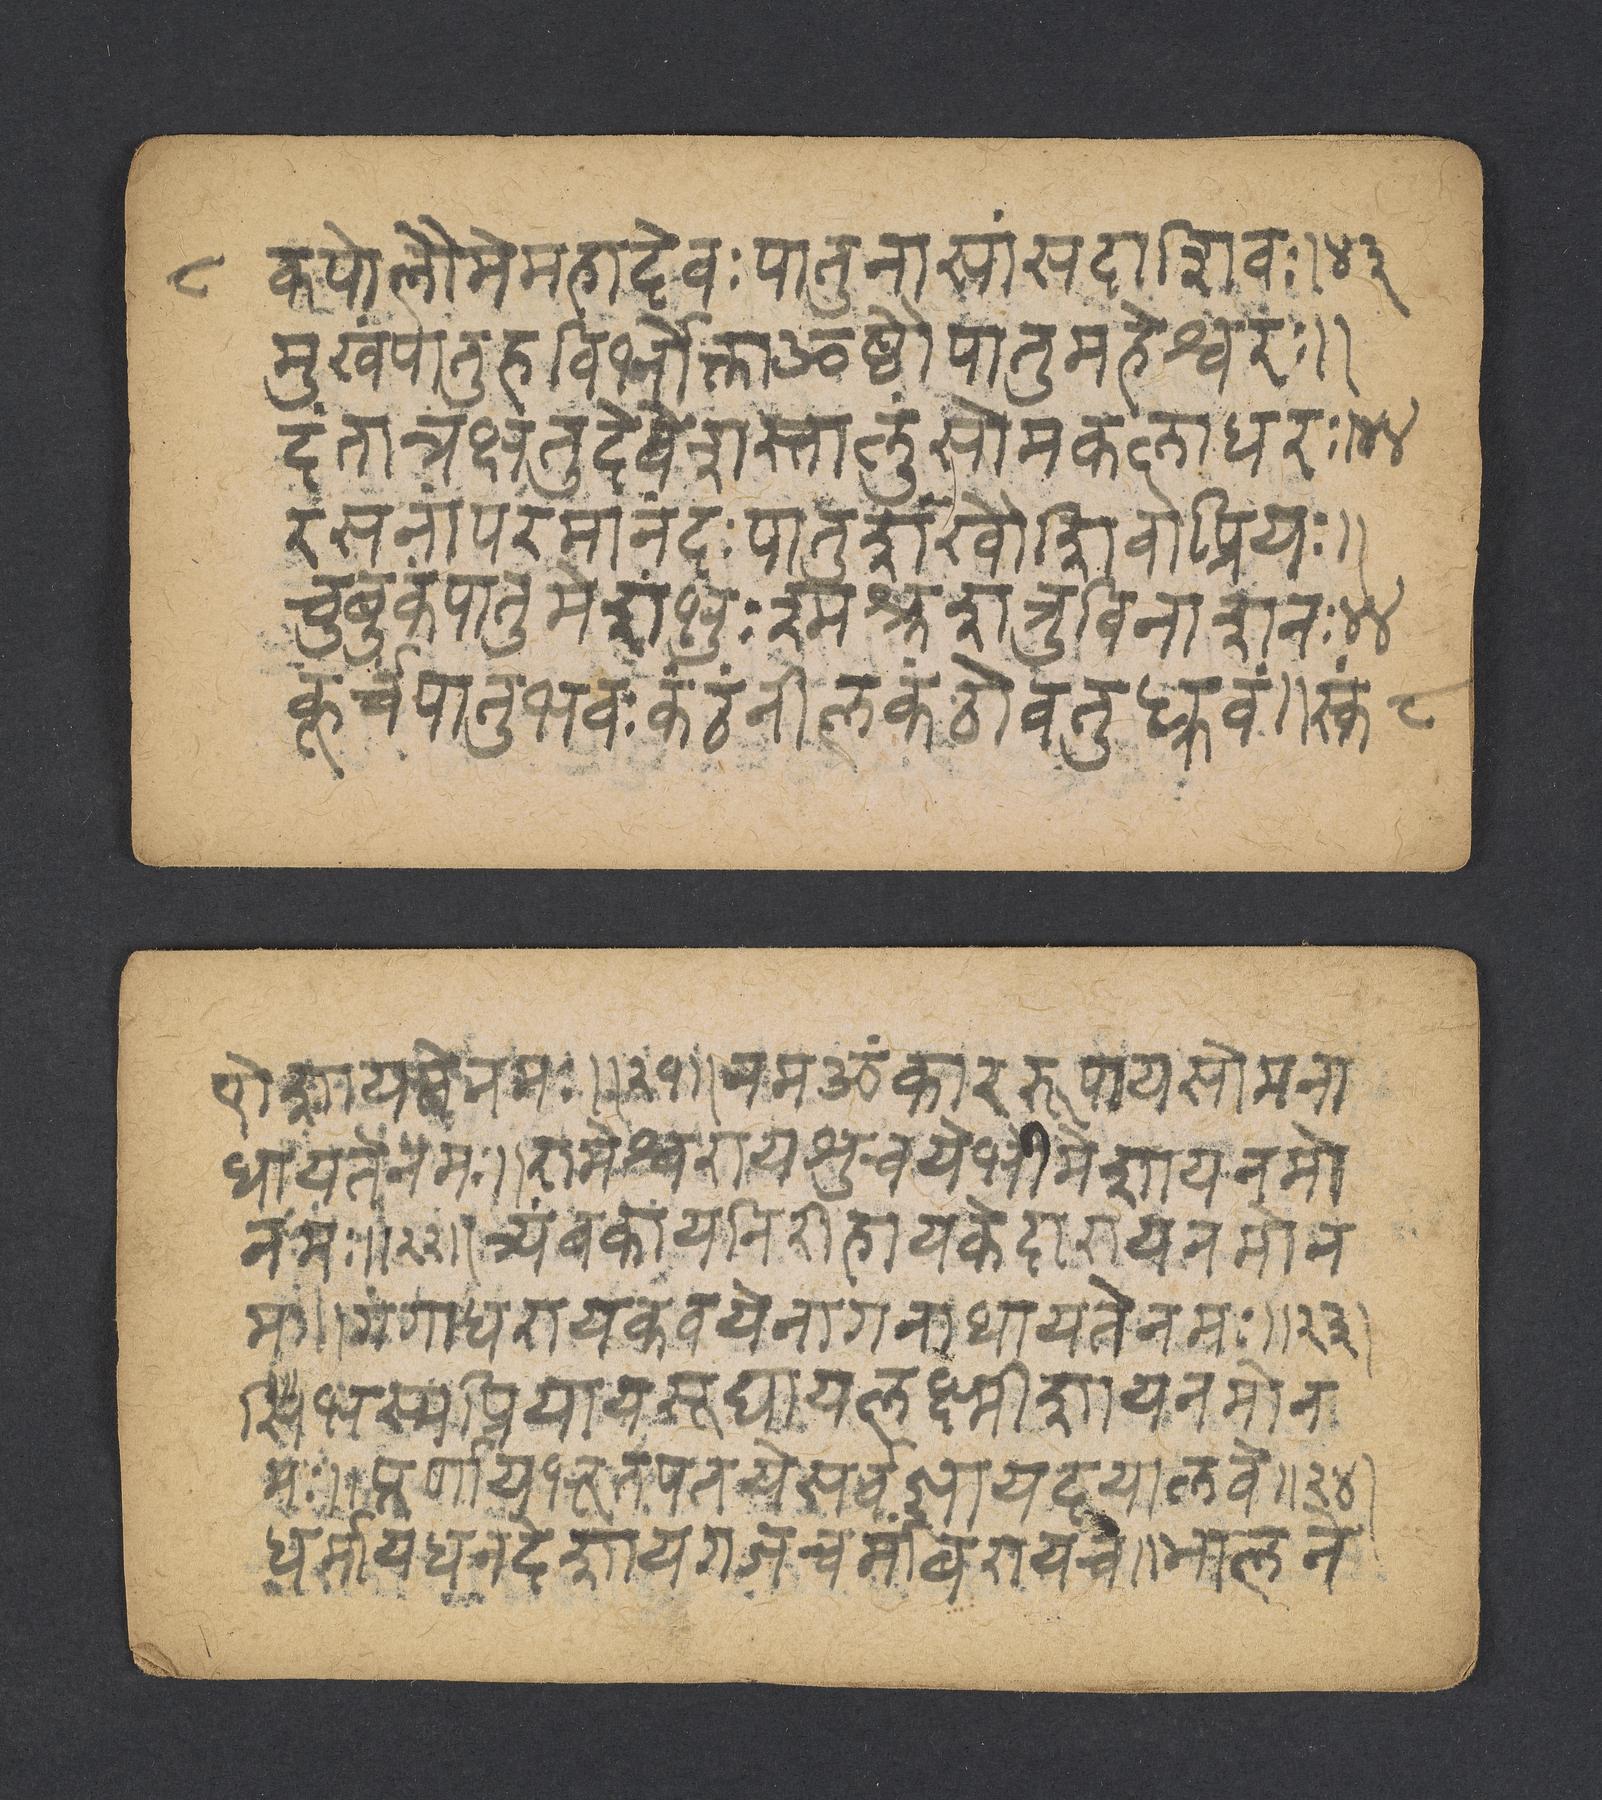 ८ कपोलौमेमहादेवःपातुनासांसदाशिवः।४३
मुखंपातुहविर्भोक्ताओष्ठौपातुमहेश्वरः॥
दंतान्त्रक्षंतुदेवेशस्तालुंसोमकलाधरः।४४
रसनांपरमानंदःपातुशंखौशिवाप्रियः॥
चुबुकंपातुमेशंभुःश्मश्रुशत्रुविनाशनः४४
कूर्चंपातुभवःकंठंनीलकंठोवतुध्रुवं॥स्कं ८
णेशायतेनमः॥२१॥नमॐकाररूपायसोमना
थायतेनमः॥रामेश्वरायशुचयेभीमेशायनमो
नमः॥२२॥त्र्यंबकायनिरीहायकेदारायनमोन
मः॥गंगाधरायकवयेनागनाथायतेनमः॥२३।
प्रियायसूर्यायलक्ष्मीशायनमोन
मः॥पूर्णायभूतपतयेसर्वज्ञायदयालवे॥२४।
धर्मायधनदेशायगजचर्मांबरायच॥भालने